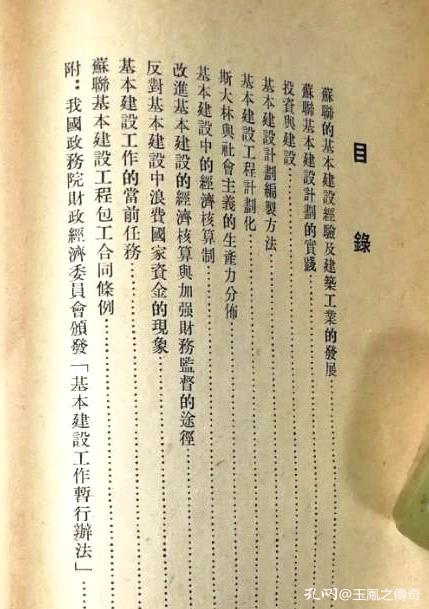 目錄
蘇聯的基本建設經驗及建築工業的發展
蘇聯基本建設計劃的實踐
投資與建設
基本建設計劃編製方法
基本建設工程計劃化
斯大林與社會主義的生產力分佈
基本建設中的經濟核算制
改進基本建設的經濟核算與加强財務監督的途徑
反對基本建設中浪費國家資金的現象
基本建設工作的當前任務
蘇聯基本建設工程包工合同條例
附：我國政務院財政經濟委員會頒發「基本建設工作暫行辦法」
孔网@玉鳳之傳奇